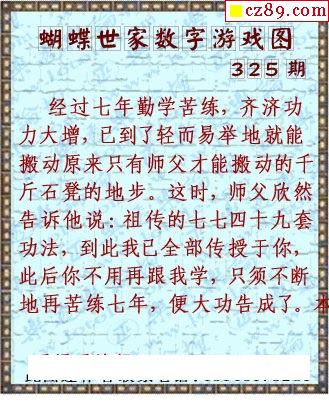 cz89.com
蝴蝶世家数字游戏图
325 期
经过七年勤学苦练，齐济功
力大增，已到了轻而易举地就能
搬动原来只有师父才能搬动的千
斤石凳的地步。这时，师父欣然
告诉他说：祖传的七七四十九套
功法，到此我已全部传授于你，
此后你不用再跟我学，只须不断
地再苦练七年，便大功告成了。本